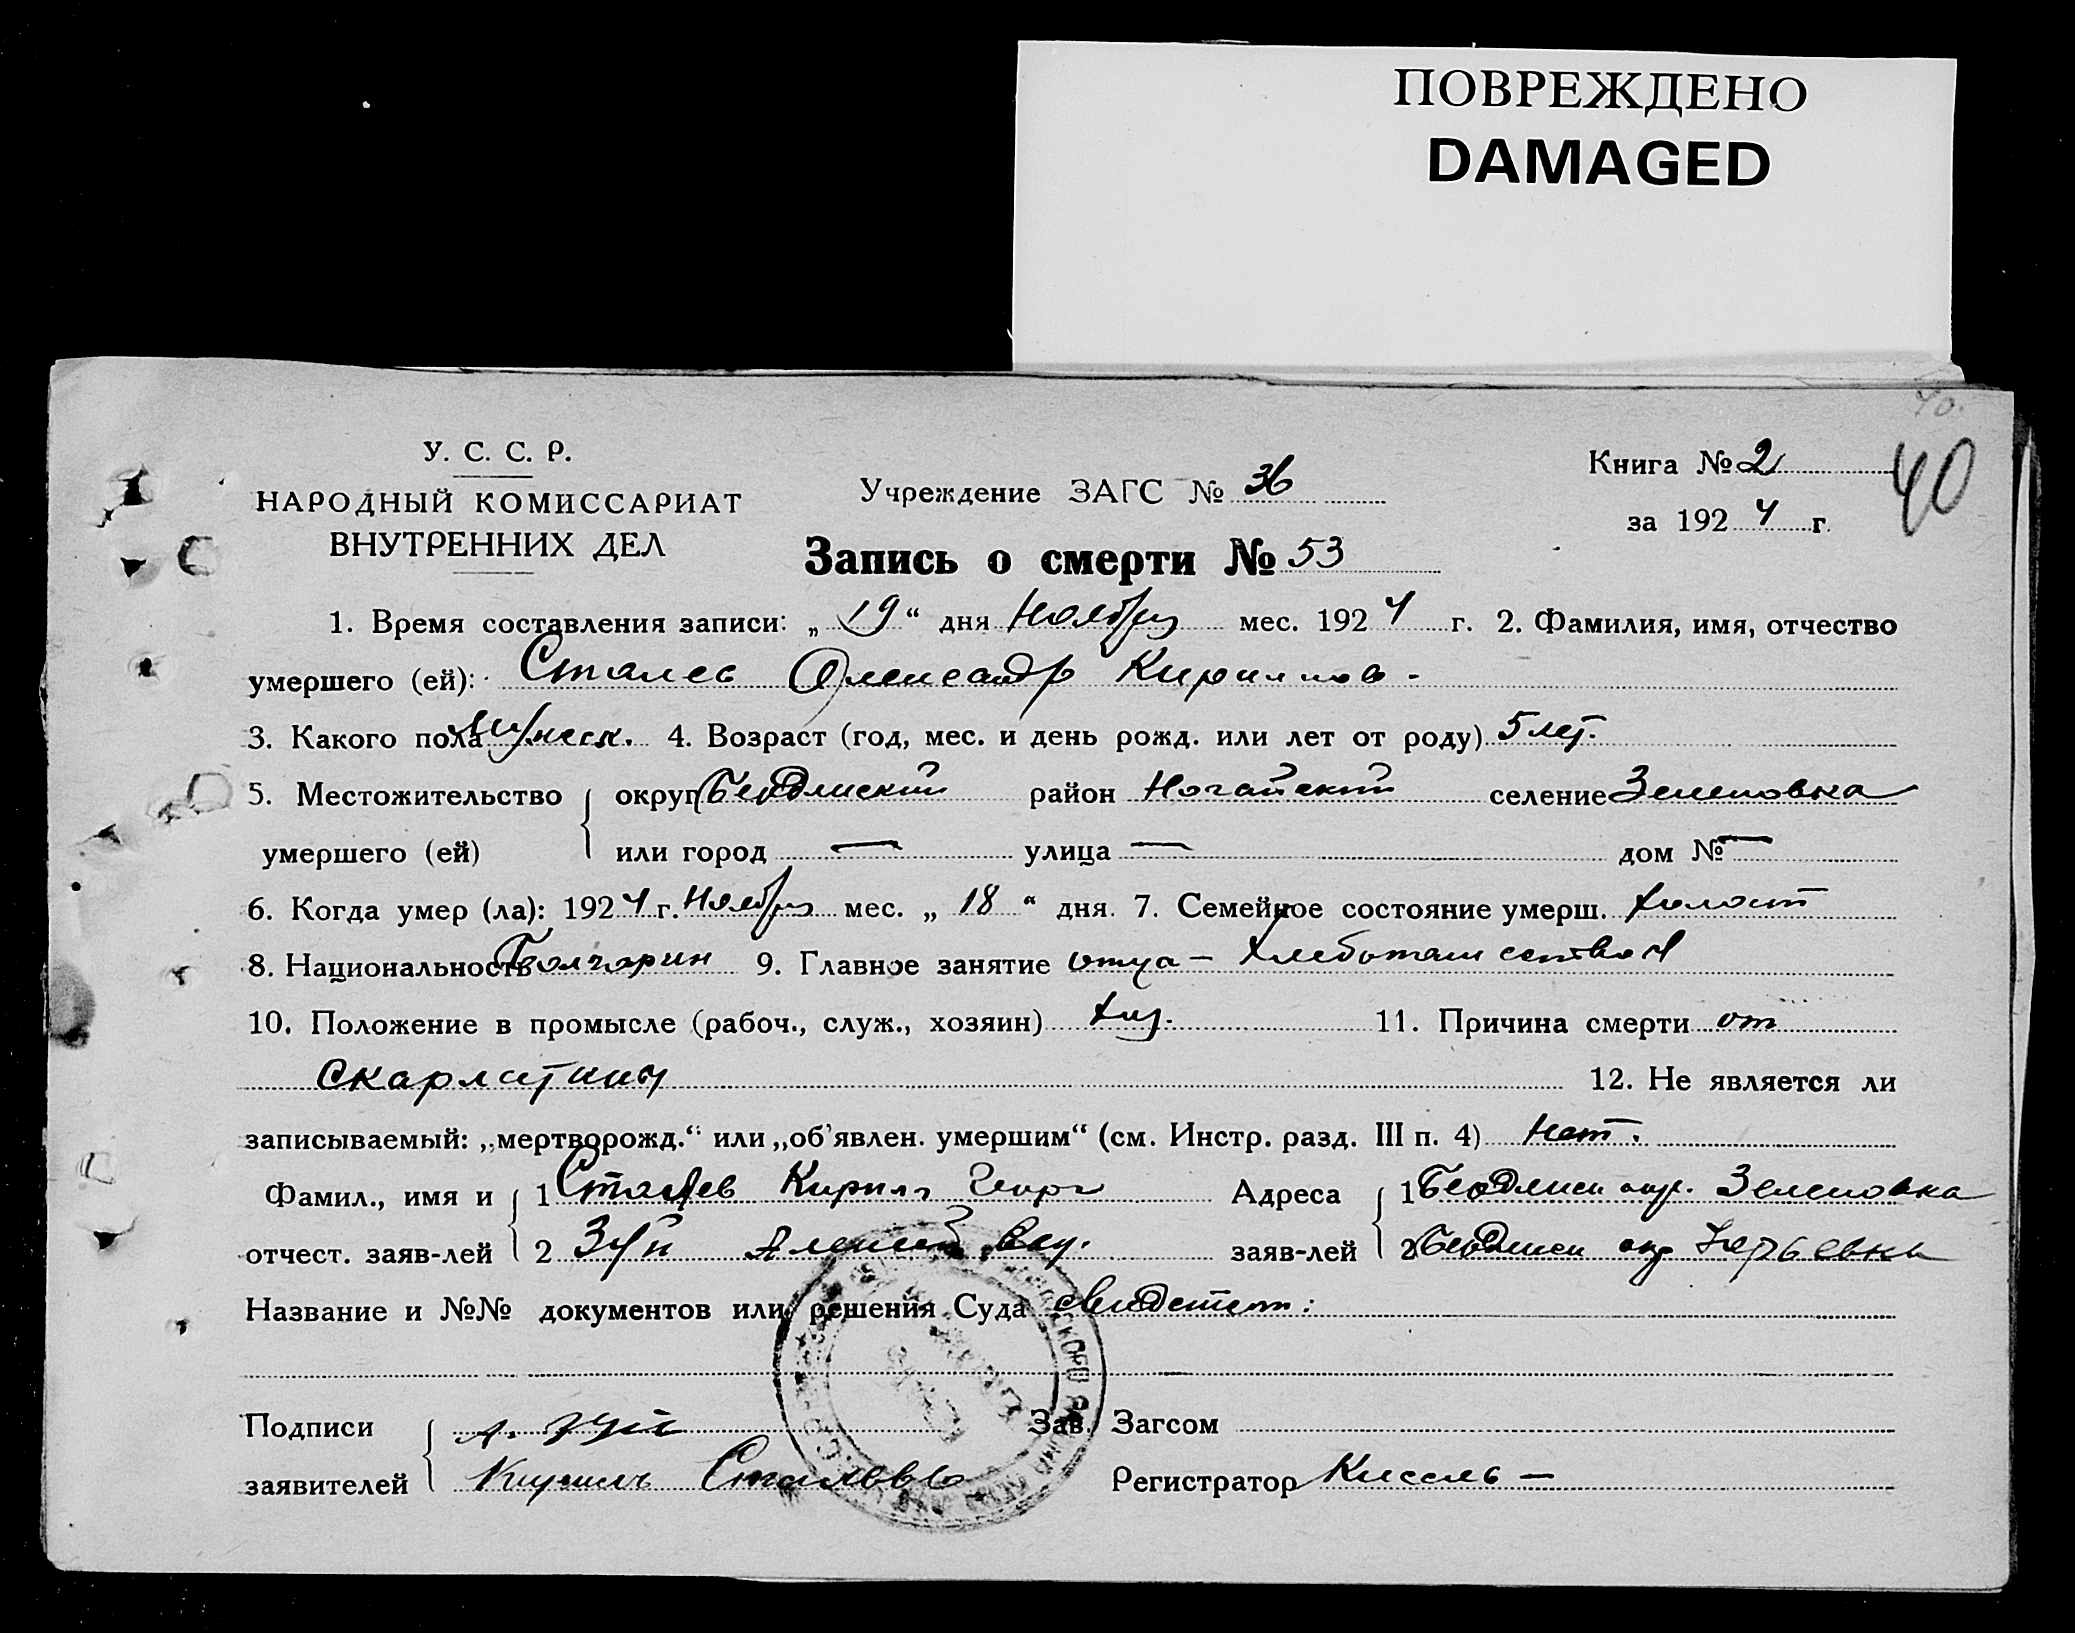 ПОВРЕЖДЕНО
DAMAGED
40.
40
У. С. С. Р.
НАРОДНЫЙ КОМИССАРИАТ
ВНУТРЕННИХ ДЕЛ
Учреждение ЗАГС № 36
Книга № 2
за 1924 г.
Запись о смерти № 53
1. Время составления записи: „19“ дня Ноября мес. 1924 г. 2. Фамилия, имя, отчество
умершего (ей): Сталев Олександр Кирилов.
3. Какого пола мужск. 4. Возраст (год, мес. и день рожд. или лет от роду) 5 лет.
5. Местожительство округ Бердянский район Ногайский селение Зеленовка
умершего (ей) или город — улица — дом № —
6. Когда умер (ла): 1924 г. Ноября мес. „18“ дня. 7. Семейное состояние умерш. холост
8. Национальность Болгарин 9. Главное занятие отца —
10. Положение в промысле (рабоч., служ., хозяин) хоз. 11. Причина смерти от
скарлатины 12. Не является ли
записываемый: „мертворожд.“ или „об'явлен. умершим“ (см. Инстр. разд. III п. 4) Нет.
Фамил., имя и 1 Сталев Кирил Георг Адреса 1 Бердянск окр. Зеленовка
отчест. заяв-лей 2 Алексей заяв-лей 2 Бердянск окр
Название и №№ документов или решения Суда свидетели:
Подписи А. Зав. Загсом
заявителей Кирилъ Сталевъ Регистратор Кисель —